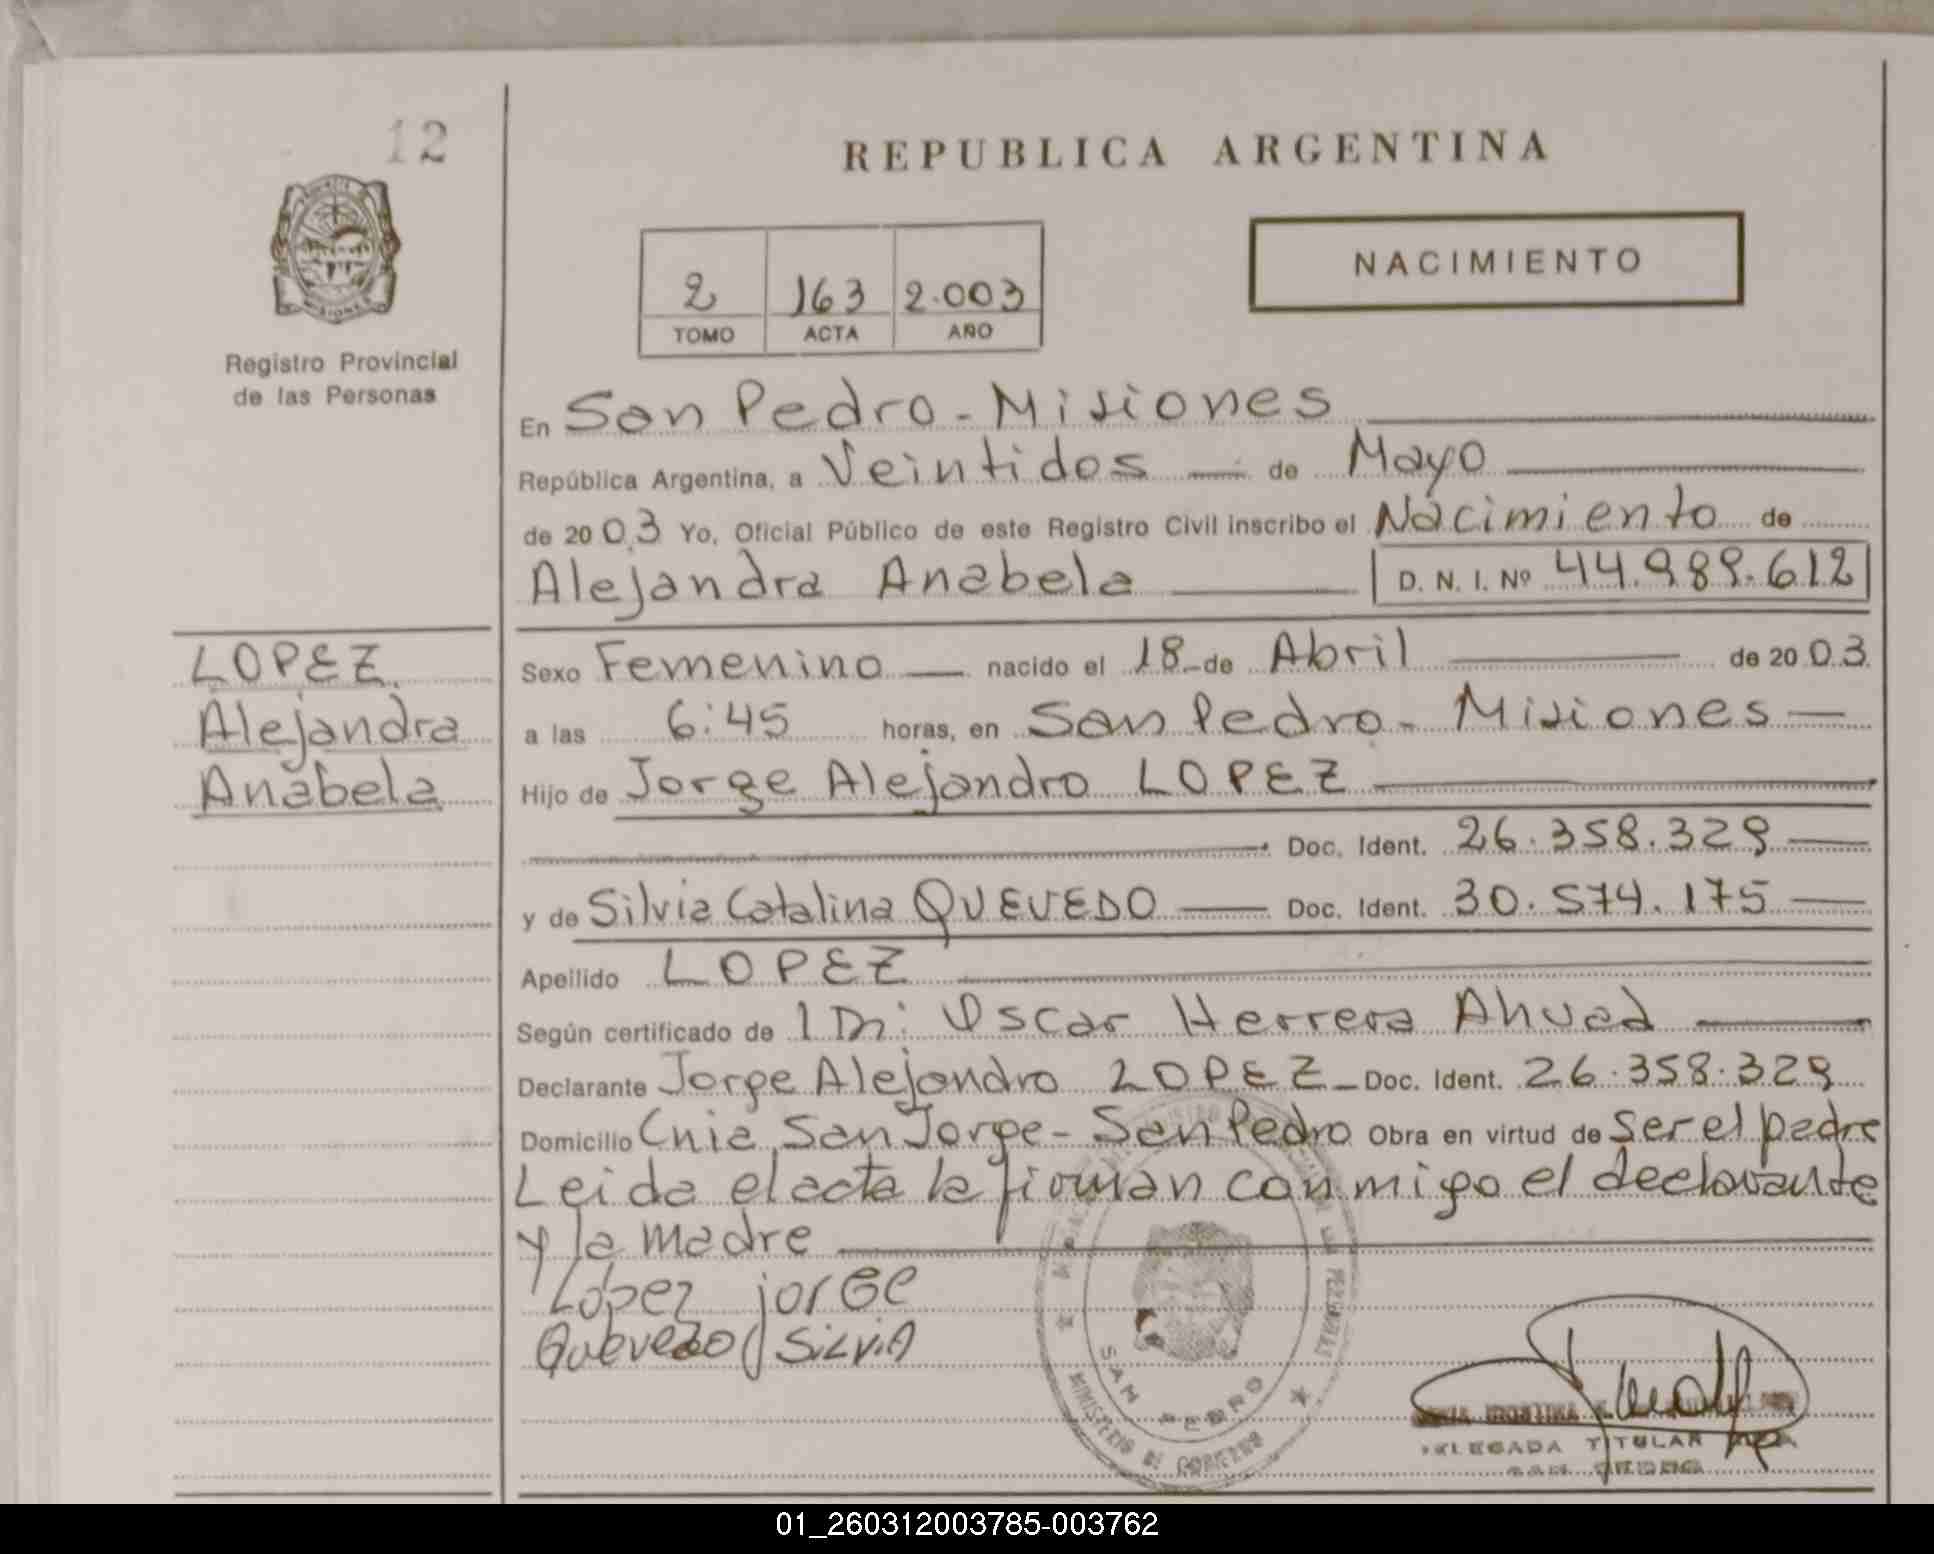 12
REPUBLICA ARGENTINA
NACIMIENTO
2 163 2.003
TOMO ACTA AÑO
Registro Provincial
de las Personas
En San Pedro - Misiones
República Argentina, a Veintidos de Mayo
de 2003 Yo, Oficial Público de este Registro Civil inscribo el Nacimiento de
Alejandra Anabela D. N. I. Nº 44.989.612
LOPEZ
Alejandra
Anabela
Sexo Femenino nacido el 18 de Abril de 2003
a las 6:45 horas, en San Pedro - Misiones
Hijo de Jorge Alejandro LOPEZ
Doc. Ident. 26.358.329
y de Silvia Catalina QUEVEDO Doc. Ident. 30.574.175
Apellido LOPEZ
Según certificado de Oscar Herrera Ahued
Declarante Jorge Alejandro LOPEZ Doc. Ident. 26.358.329
Domicilio Cnia San Jorge - San Pedro Obra en virtud de ser el padre
Leida el acta la firman conmigo el declarante
y la madre
López jorge
Quevedo SiLViA
SAN PEDRO
MINISTERIO DE GOBIERNO
DELEGADA TITULAR
SAN PEDRO
01_260312003785-003762